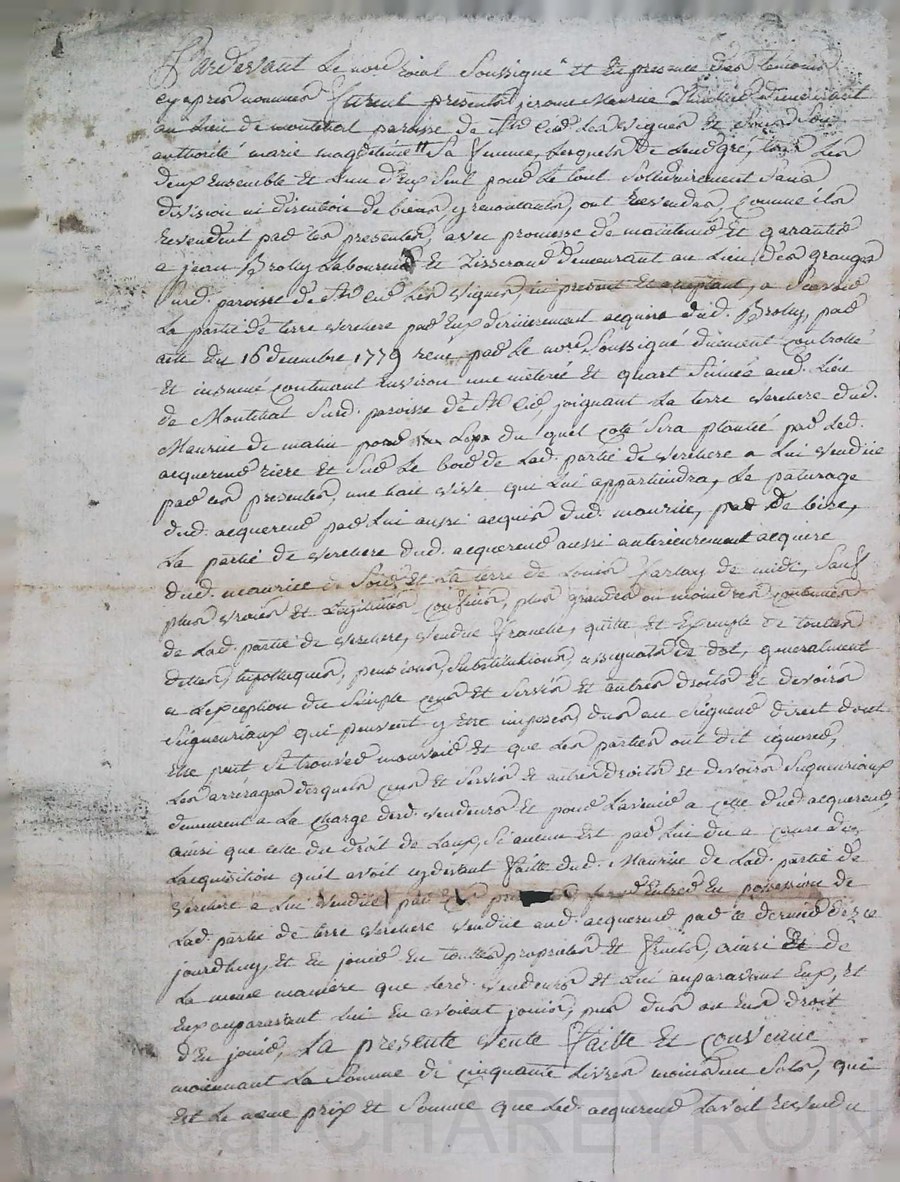 Pardevant le nore roial soussigné et en presence des temoins
cy apres nommés furent presents jerome Maurice demeurant
au lieu de montchat paroisse de St Cir les vignes et sous son
authorité marie magdelaine sa femme, lesquels de leur gré, tous les
deux ensemble et l'un d'eux seul pour le tout solidairement sans
division ni discution de biens, y renontants, ont revendu, comme ils
revendent par ces presentes, avec promesse de maintenir et garantir
a jean Broly laboureur et tisserand demeurant au lieu des granges
surd. paroisse de St Cir les vignes, ici present et acceptant, a scavoir
la partie de terre verchere par eux dernierement acquise dud. Broly, par
acte du 16 decembre 1779 reçu par le nore soussigné duement controllé
et insinué contenant environ une meterée et quart située aud. lieu
de Montchat surd. paroisse de St Cir, joignant la terre verchere dud.
Maurice de matin pour du quel coté sera plantée par led.
acquereur riere et sur le bord de lad. partie de verchere a lui vendue
par ces presentes, une haie vive qui lui appartiendra, le paturage
dud. acquereur par lui aussi acquis dud. maurice, par de bize,
la partie de verchere dud. acquereur aussi anterieurement acquise
dud. maurice de soir et la terre de Louis Farlay de midi, sauf
plus vraies et legitimes confins, plus grandes ou moindres contenues
de lad. partie de verchere, vendue franche, quitte et exempte de toutes
dettes, hypotheques, pensions, substitutions, assignats de dot, generalement
a l'exception du simple cens et servis et autres droits et devoirs
seigneuriaux qui peuvent y etre imposés dus au seigneur direct dont
elle peut se trouver mouvoir et que les parties ont dit ignorer,
les arrerages desquels cens et servis et autres droits et devoirs seigneuriaux
demeurent a la charge desd. vendeurs et pour l'avenir a celle dud acquereur,
ainsi que celle du droit de laux, si aucun est par lui du a cause de
l'acquisition qu'il avoit cydevant faitte dud. Maurice de lad. partie de
verchere a lui vendue par pour entrer en possession de
lad. partie de terre verchere vendue aud. acquereur par ce dernier dez ce
jourdhuy, et en jouir en touttes proprietés et fruits, ainsi et de
la meme maniere que lesd. vendeurs et lui auparavant eux, et
eux auparavant lui en avoient jouis, pu du ou en droit
d'en jouir, la presente vente faitte et convenue
moiennant la somme de cinquante livres moins un sols, qui
est le meme prix et somme que led. acquereur l'avoit revendu
CHAREYRON